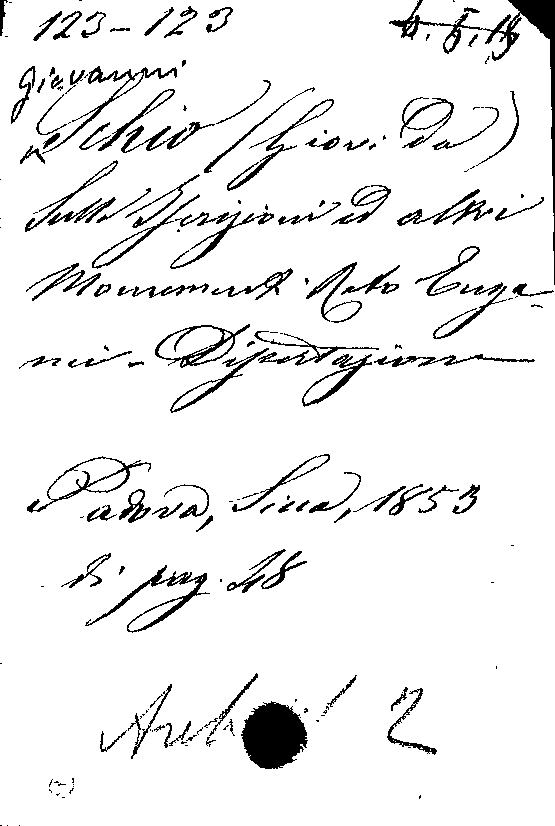 123-123 4.5.19
Giovanni
Schio (Giov. da)
Sulle Iscrizioni ed altri
Monumenti Reto Euga-
nei - Dissertazione
Padova, Sicca, 1853
di pag. 48
2